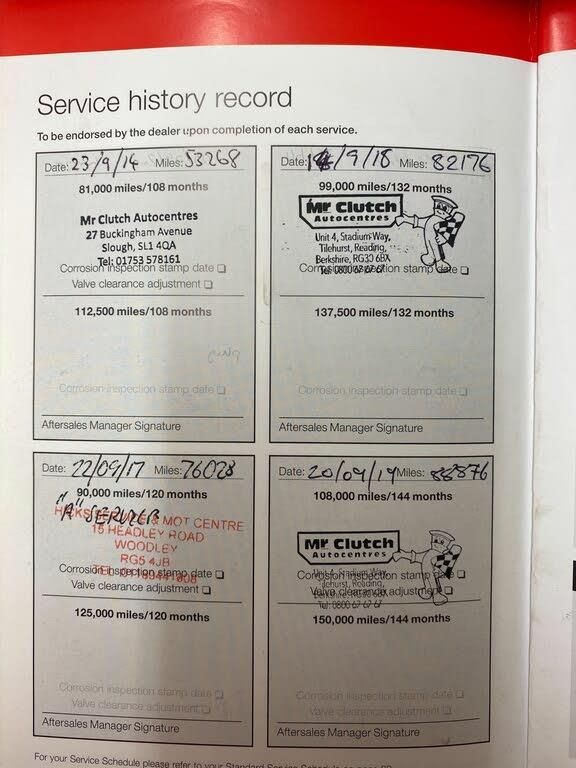 Service history record
To be endorsed by the dealer upon completion of each service.
Date: 23/9/14 Miles: 53268
81,000 miles/108 months
Mr Clutch Autocentres
27 Buckingham Avenue
Slough, SL1 4QA
Tel: 01753 578161
Corrosion inspection stamp date
Valve clearance adjustment
112,500 miles/108 months
Corrosion inspection stamp date
Aftersales Manager Signature
Date: 14/9/18 Miles: 82176
99,000 miles/132 months
Mr Clutch
Autocentres
Unit 4, Stadium Way,
Tilehurst, Reading,
Berkshire, RG30 6BX
Tel: 0800 67 67 67
Corrosion inspection stamp date
137,500 miles/132 months
Corrosion inspection stamp date
Aftersales Manager Signature
Date: 22/09/17 Miles: 76028
90,000 miles/120 months
"A" SERVICE
& MOT CENTRE
15 HEADLEY ROAD
WOODLEY
RG5 4JB
Corrosion inspection stamp date
Valve clearance adjustment
125,000 miles/120 months
Corrosion inspection stamp date
Valve clearance adjustment
Aftersales Manager Signature
Date: 20/09/19 Miles: 88876
108,000 miles/144 months
Mr Clutch
Autocentres
Unit 4, Stadium Way,
Tilehurst, Reading,
Berkshire, RG30 6BX
Tel: 0800 67 67 67
Corrosion inspection stamp date
Valve clearance adjustment
150,000 miles/144 months
Corrosion inspection stamp date
Valve clearance adjustment
Aftersales Manager Signature
For your Service Schedule please refer to your Standard Service Schedule on page